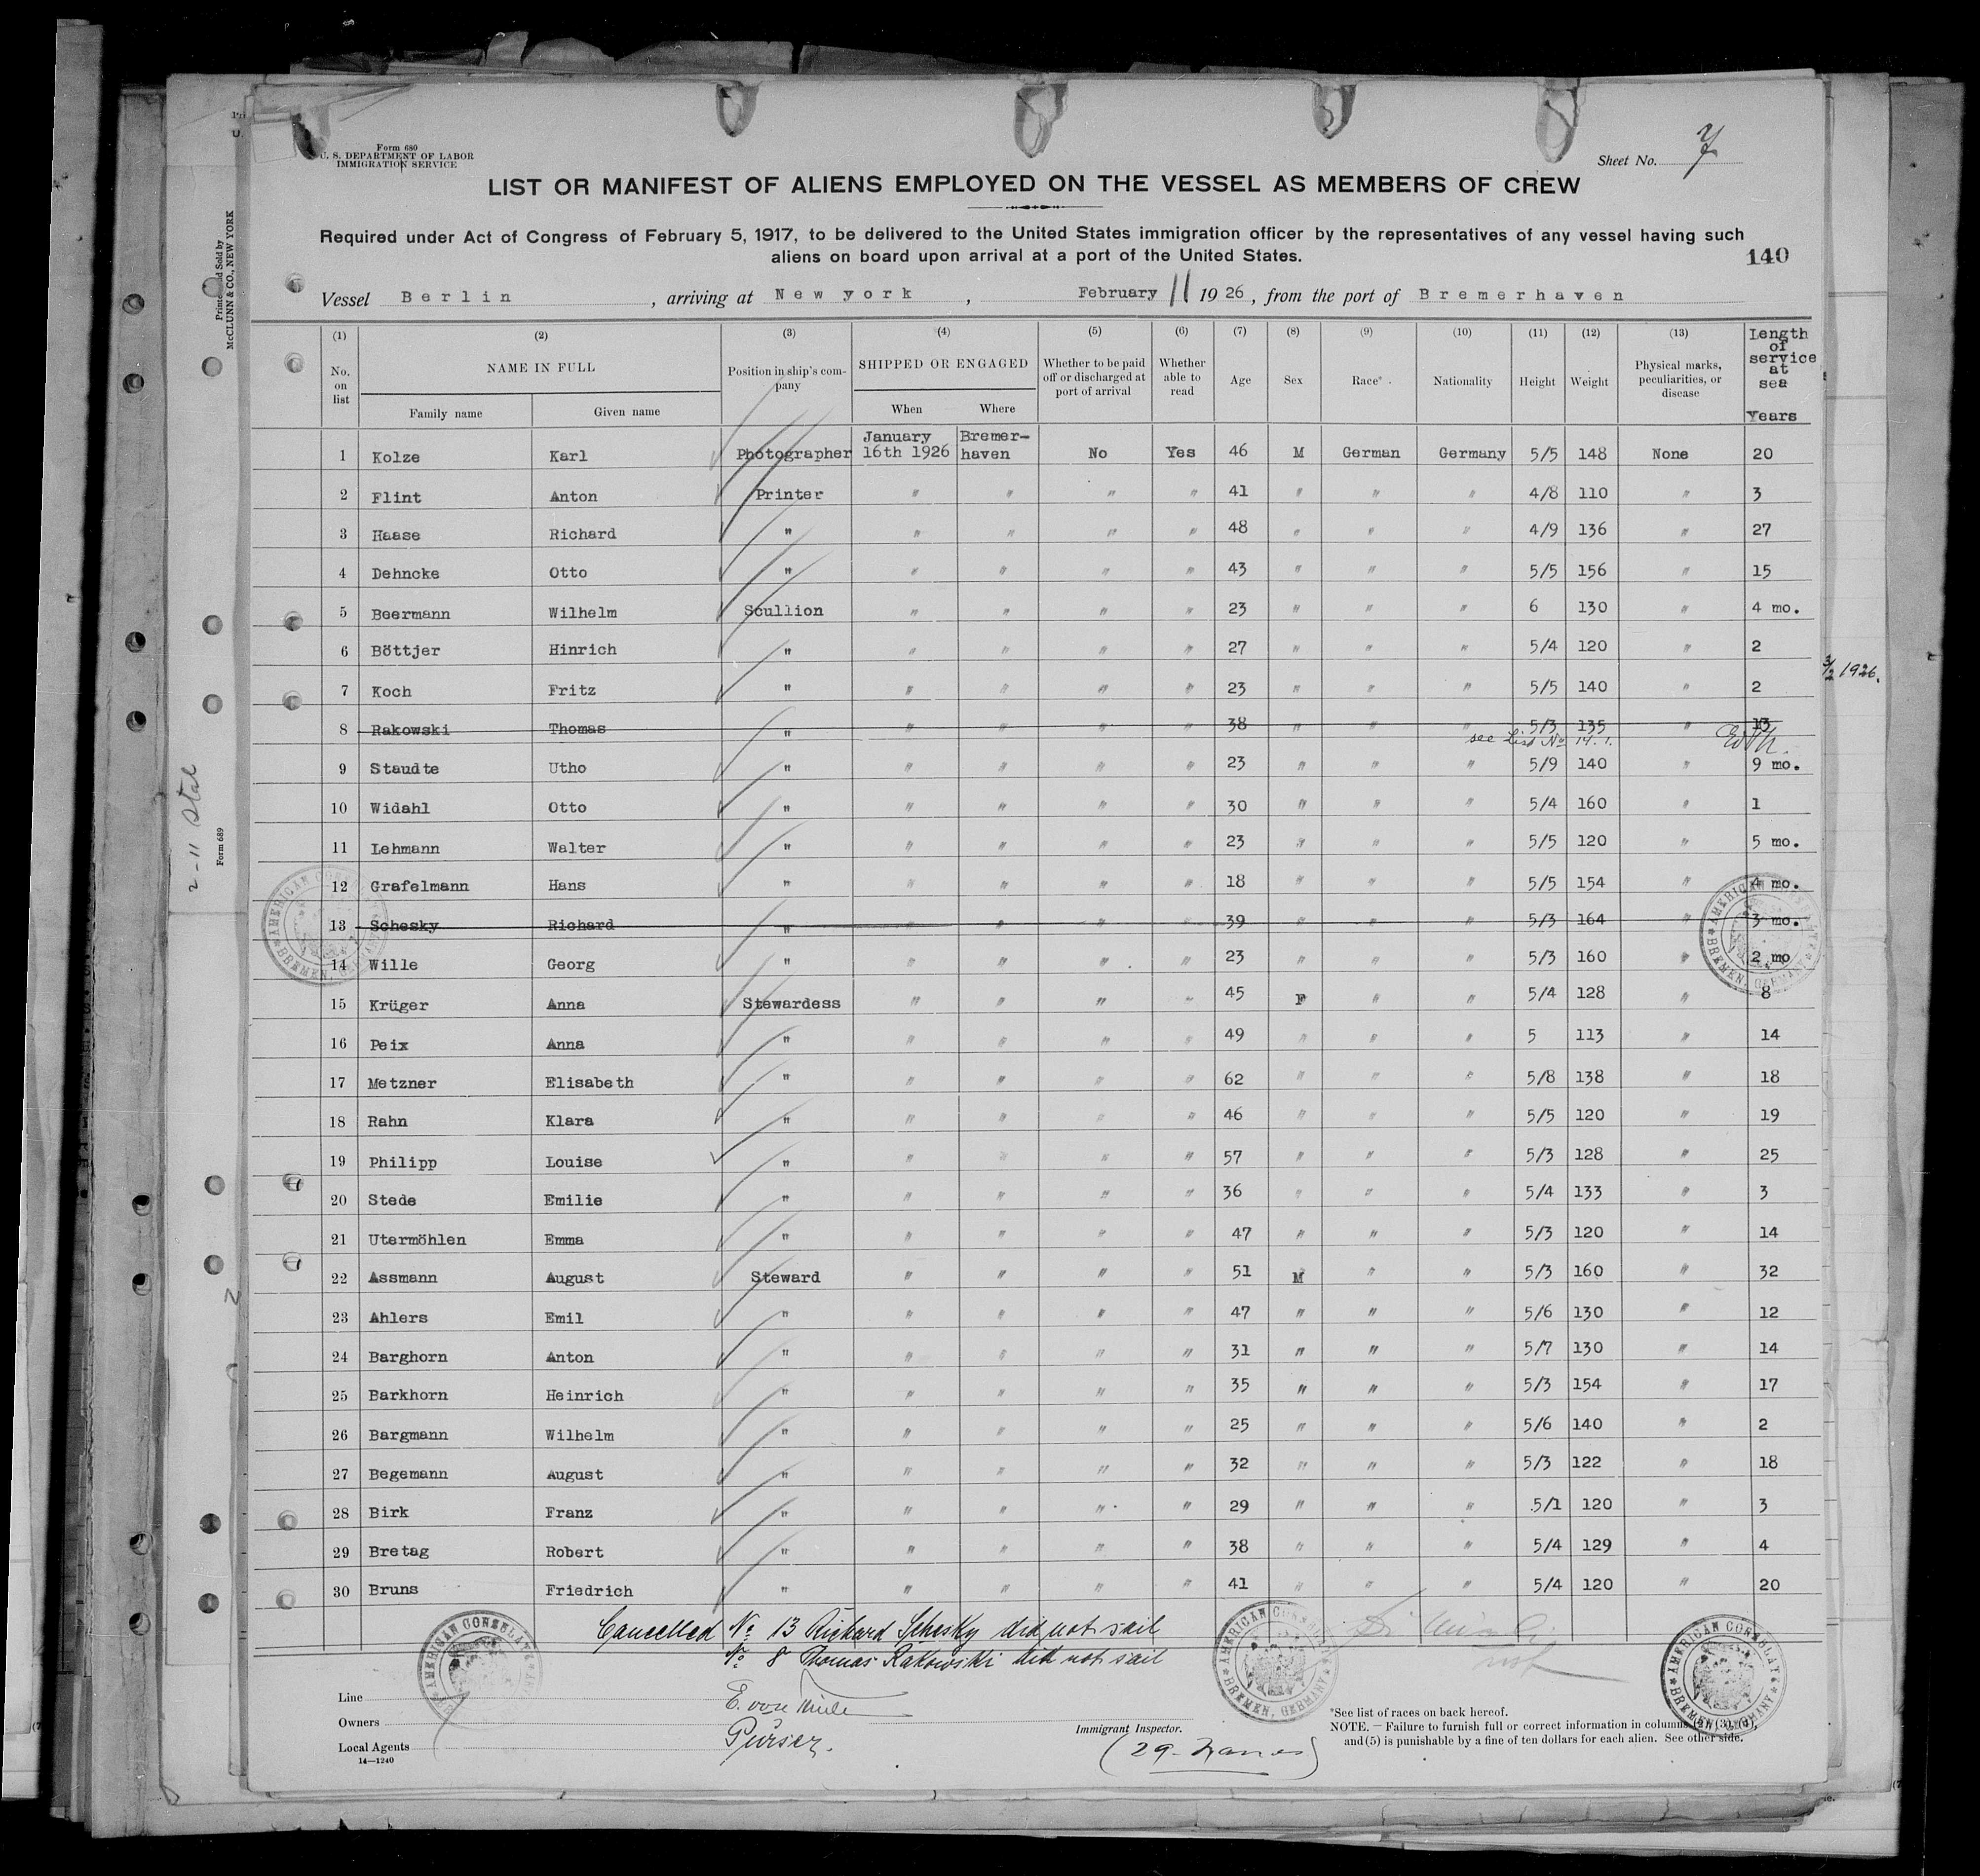 Form 680
U. S. DEPARTMENT OF LABOR
IMMIGRATION SERVICE
Sheet No. 7
LIST OR MANIFEST OF ALIENS EMPLOYED ON THE VESSEL AS MEMBERS OF CREW
Required under Act of Congress of February 5, 1917, to be delivered to the United States immigration officer by the representatives of any vessel having such
aliens on board upon arrival at a port of the United States.
140
Vessel Berlin, arriving at New york, February 11 1926, from the port of Bremerhaven
(1) (2) (3) (4) (5) (6) (7) (8) (9) (10) (11) (12) (13)
No. on list NAME IN FULL Family name Given name Position in ship's company SHIPPED OR ENGAGED When Where Whether to be paid off or discharged at port of arrival Whether able to read Age Sex Race* Nationality Height Weight Physical marks, peculiarities, or disease Length of service at sea Years
1 Kolze Karl Photographer January 16th 1926 Bremer-haven No Yes 46 M German Germany 5/5 148 None 20
2 Flint Anton Printer " " " " 41 " " " 4/8 110 " 3
3 Haase Richard " " " " " 48 " " " 4/9 136 " 27
4 Dehncke Otto " " " " " 43 " " " 5/5 156 " 15
5 Beermann Wilhelm Scullion " " " " 23 " " " 6 130 " 4 mo.
6 Böttjer Hinrich " " " " " 27 " " " 5/4 120 " 2
7 Koch Fritz " " " " " 23 " " " 5/5 140 " 2
8 Rakowski Thomas " " " " " 38 " " " 5/3 135 " 13
see List No 14. 1.
9 Staudte Utho " " " " " 23 " " " 5/9 140 " 9 mo.
10 Widahl Otto " " " " " 30 " " " 5/4 160 " 1
11 Lehmann Walter " " " " " 23 " " " 5/5 120 " 5 mo.
12 Grafelmann Hans " " " " " 18 " " " 5/5 154 " 4 mo.
13 Schesky Richard " " " " " 39 " " " 5/3 164 " 3 mo.
14 Wille Georg " " " " " 23 " " " 5/3 160 " 2 mo
15 Krüger Anna Stewardess " " " " 45 F " " 5/4 128 " 8
16 Peix Anna " " " " " 49 " " " 5 113 " 14
17 Metzner Elisabeth " " " " " 62 " " " 5/8 138 " 18
18 Rahn Klara " " " " " 46 " " " 5/5 120 " 19
19 Philipp Louise " " " " " 57 " " " 5/3 128 " 25
20 Stede Emilie " " " " " 36 " " " 5/4 133 " 3
21 Utermöhlen Emma " " " " " 47 " " " 5/3 120 " 14
22 Assmann August Steward " " " " 51 M " " 5/3 160 " 32
23 Ahlers Emil " " " " " 47 " " " 5/6 130 " 12
24 Barghorn Anton " " " " " 31 " " " 5/7 130 " 14
25 Barkhorn Heinrich " " " " " 35 " " " 5/3 154 " 17
26 Bargmann Wilhelm " " " " " 25 " " " 5/6 140 " 2
27 Begemann August " " " " " 32 " " " 5/3 122 " 18
28 Birk Franz " " " " " 29 " " " 5/1 120 " 3
29 Bretag Robert " " " " " 38 " " " 5/4 129 " 4
30 Bruns Friedrich " " " " " 41 " " " 5/4 120 " 20
Cancelled No 13 Richard Schesky did not sail
No 8 Thomas Rakowski did not sail
Line
Owners
Local Agents
14—1240
Purser.
Immigrant Inspector.
*See list of races on back hereof.
NOTE. — Failure to furnish full or correct information in columns (2), (3), (4),
and (5) is punishable by a fine of ten dollars for each alien. See other side.
AMERICAN CONSULATE BREMEN, GERMANY
AMERICAN CONSULATE BREMEN, GERMANY
AMERICAN CONSULATE
AMERICAN CONSULATE BREMEN, GERMANY
AMERICAN CONSULATE BREMEN, GERMANY
Printed and Sold by
McCLUNN & CO., NEW YORK
Form 689
2-11
1926.